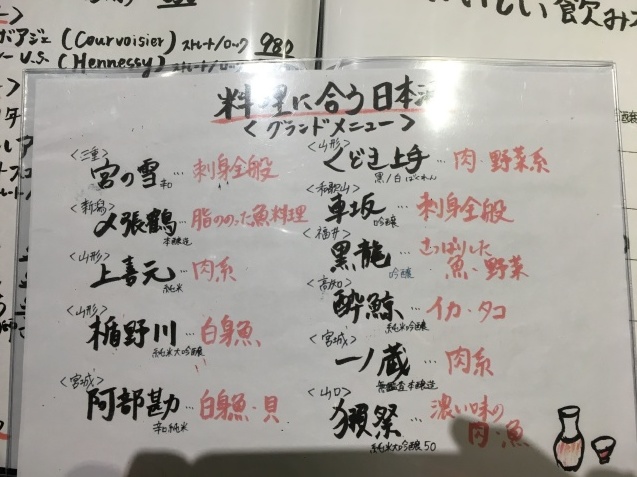 (Courvoisier) ストレート/ロック 980
V.S. (Hennessy) ストレート/ロック
料理に合う日本酒
<グランドメニュー>
<三重>
宮の雪 … 刺身全般
<新潟>
〆張鶴 … 脂ののった魚料理
本醸造
<山形>
上喜元 … 肉系
純米
<山形>
楯野川 … 白身魚
純米大吟醸
<宮城>
阿部勘 … 白身魚・貝
辛口純米
<山形>
くどき上手 … 肉・野菜系
黒/白ばくれん
<和歌山>
車坂 … 刺身全般
吟醸
<福井>
黒龍 … さっぱりした
魚・野菜
吟醸
<高知>
酔鯨 … イカ・タコ
純米吟醸
<宮城>
一ノ蔵 … 肉系
無鑑査本醸造
<山口>
獺祭 … 濃い味の
肉・魚
純米大吟醸50